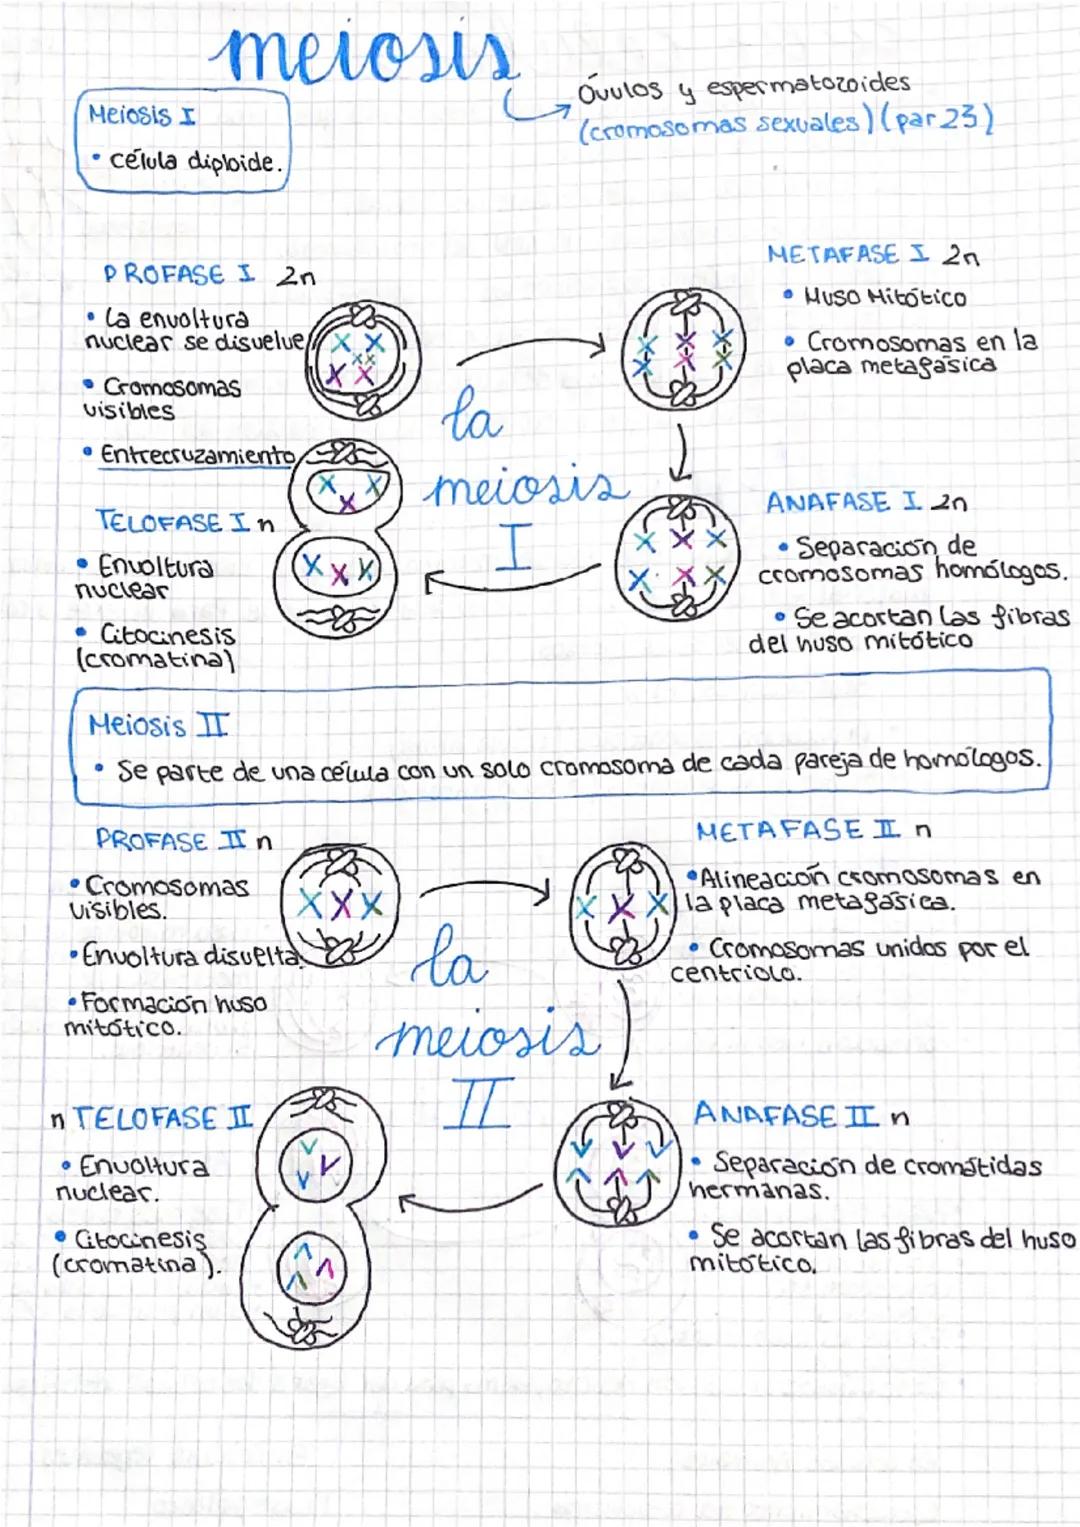 meiosis
Óvulos y espermatozoides
(cromosomas sexuales) (par 23)
Meiosis I
• célula diploide.
PROFASE I 2n
• La envoltura
nuclear se disuelve
• Cromosomas
visibles
• Entrecruzamiento
METAFASE I 2n
• Huso Mitótico
• Cromosomas en la
placa metafásica
la
meiosis
I
TELOFASE I n
• Envoltura
nuclear
• Citocinesis
(cromatina)
ANAFASE I 2n
• Separación de
cromosomas homólogos.
• Se acortan las fibras
del huso mitótico
Meiosis II
• Se parte de una célula con un solo cromosoma de cada pareja de homólogos.
PROFASE II n
• Cromosomas
visibles.
• Envoltura disuelta.
• Formación huso
mitótico.
METAFASE II n
• Alineación cromosomas en
la placa metafásica.
• Cromosomas unidos por el
centriolo.
la
meiosis
II
n TELOFASE II
• Envoltura
nuclear.
• Citocinesis
(cromatina).
ANAFASE II n
• Separación de cromátidas
hermanas.
• Se acortan las fibras del huso
mitótico.